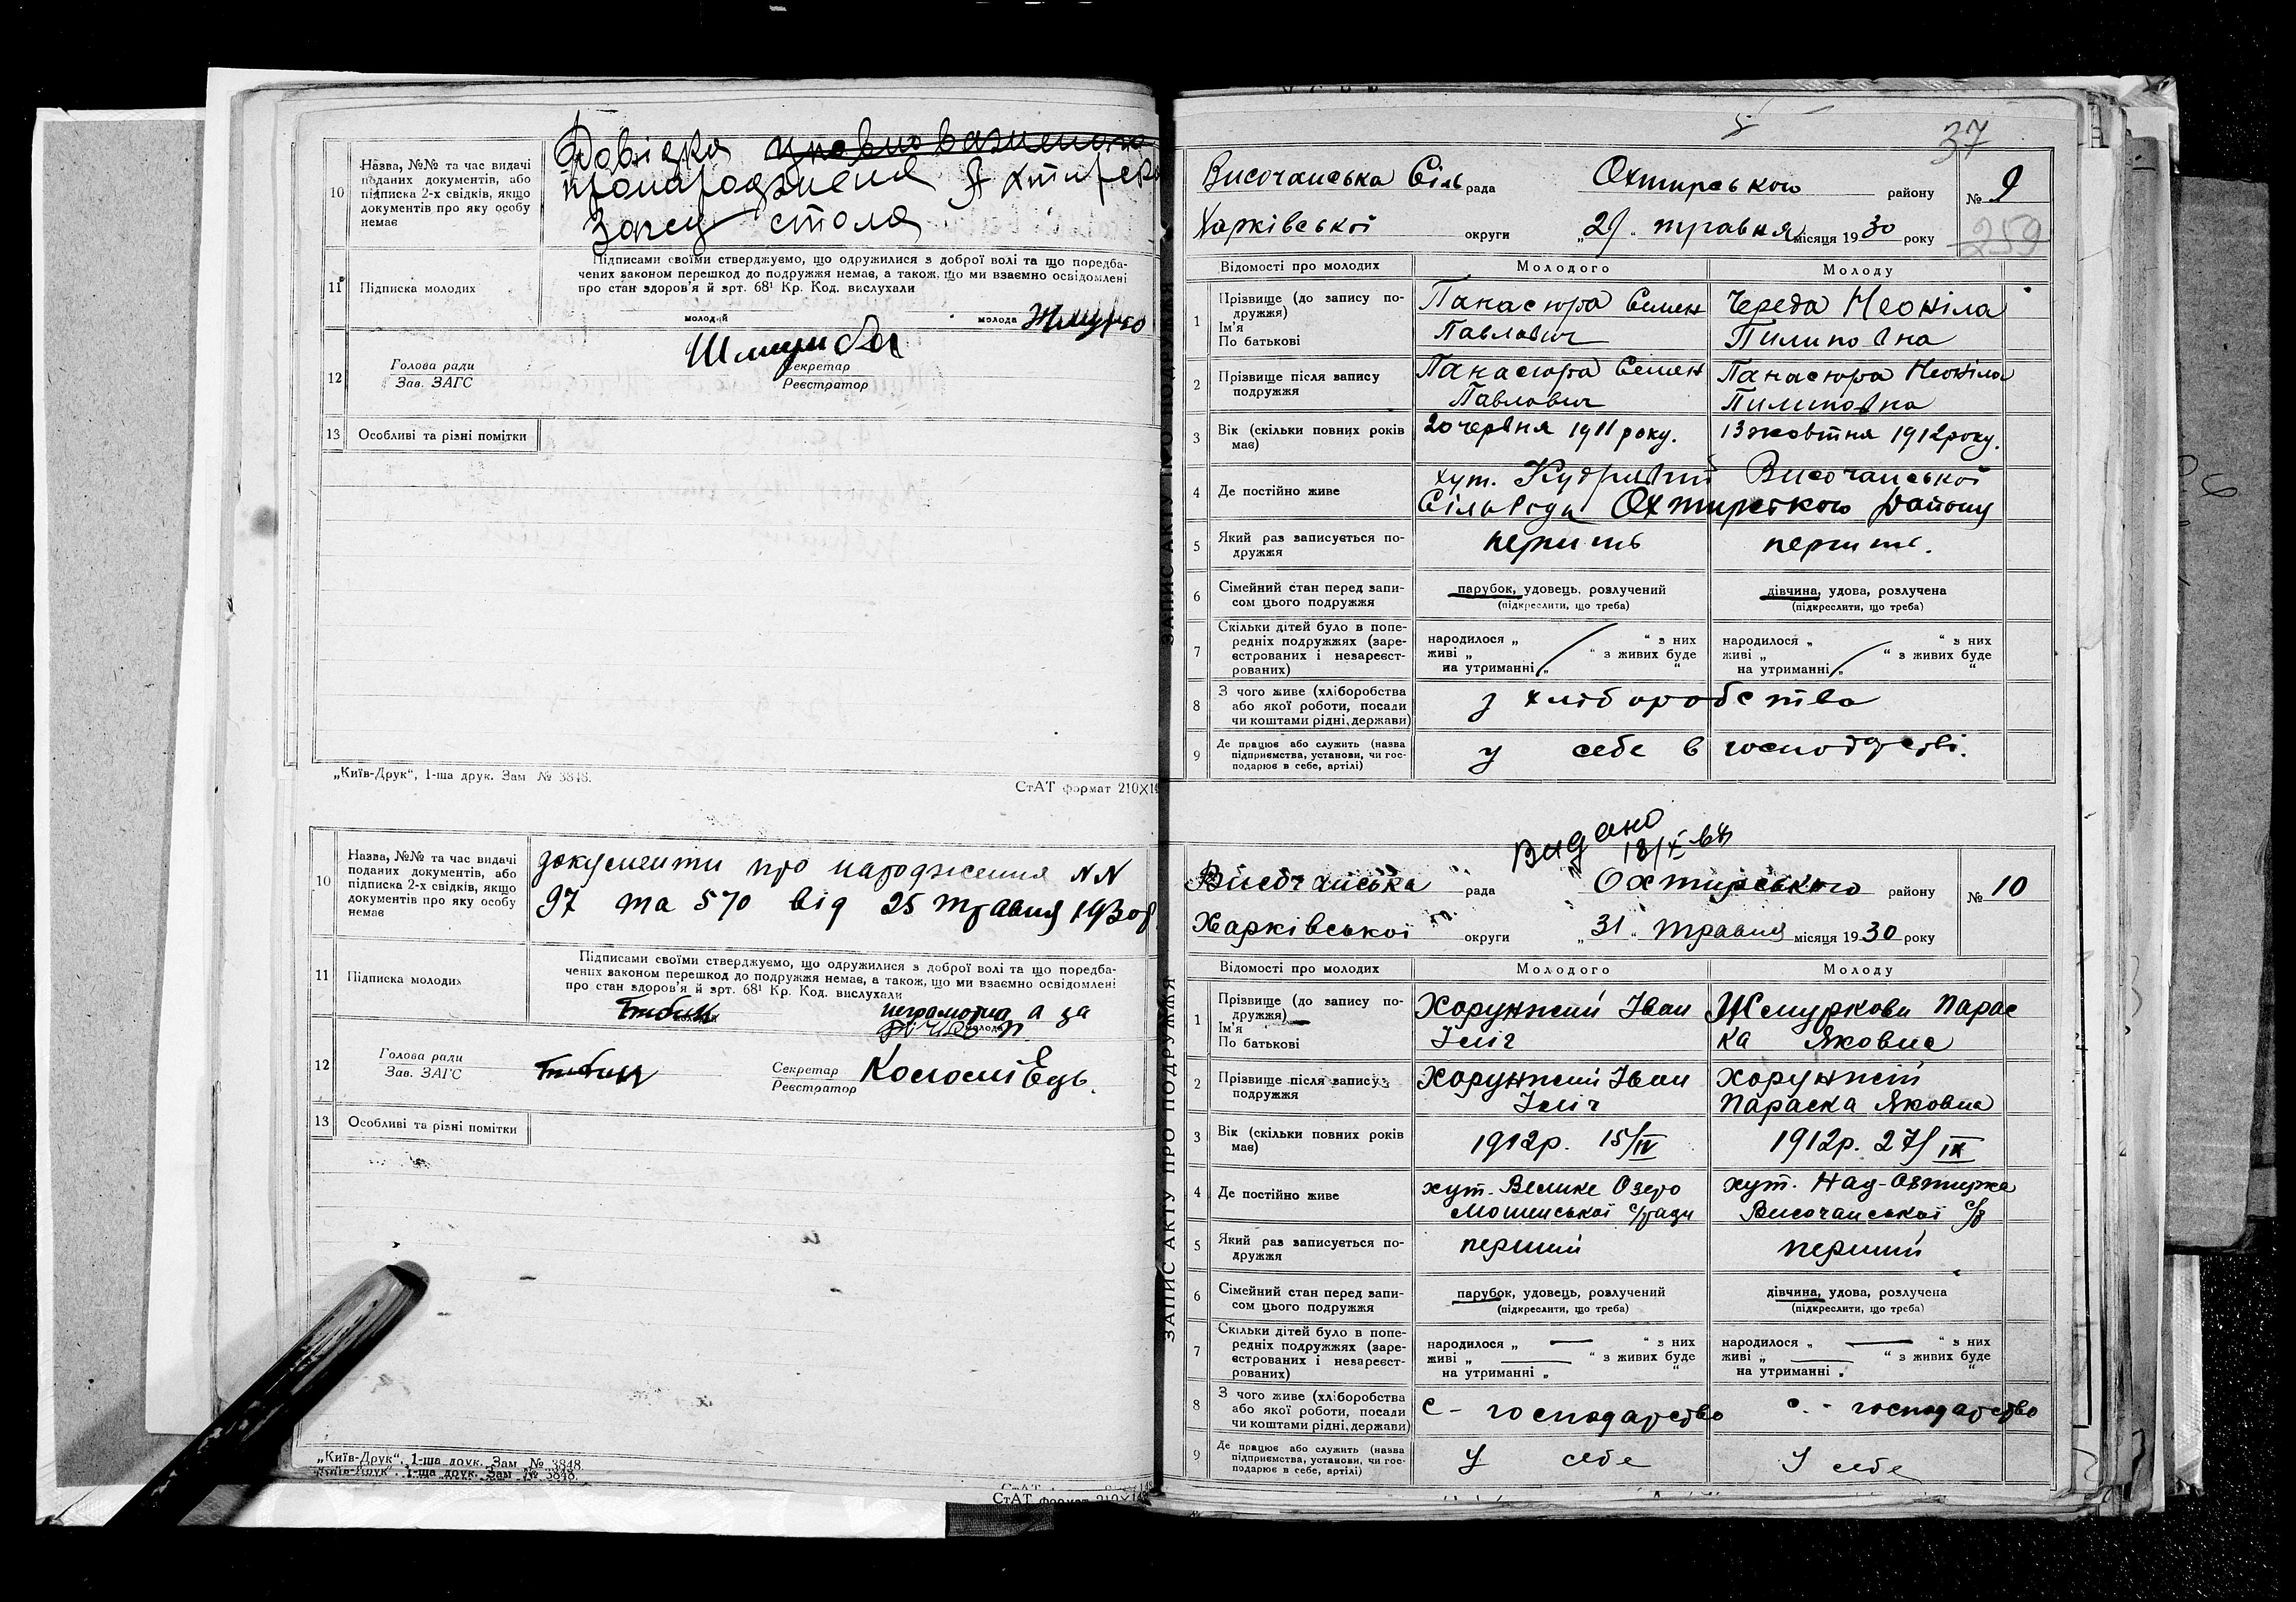 10 Назва, №№ та час видачі
поданих документів, або
підписка 2-х свідків, якщо
документів про яку особу
немає
Довідка
Загсу стола
11 Підписка молодих
Підписами своїми стверджуємо, що одружилися з доброї волі та що поредба-
чених законом перешкод до подружжя немає, а також, що ми взаємно освідомлені
про стан здоров'я й арт. 68¹ Кр. Код. вислухали
молодий
молода
12 Голова ради
Зав. ЗАГС
Секретар
Реєстратор
13 Особливі та різні помітки
„Київ-Друк“, 1-ша друк. Зам № 3848.
СтАТ формат 210×14
10 Назва, №№ та час видачі
поданих документів, або
підписка 2-х свідків, якщо
документів про яку особу
немає
документи про народження NN
97 та 570 від 25 травня 1930р
11 Підписка молодих
Підписами своїми стверджуємо, що одружилися з доброї волі та що поредба-
чених законом перешкод до подружжя немає, а також, що ми взаємно освідомлені
про стан здоров'я й арт. 68¹ Кр. Код. вислухали
неграмотна а за
молода
12 Голова ради
Зав. ЗАГС
Секретар
Реєстратор
13 Особливі та різні помітки
„Київ-Друк“. 1-ша друк. Зам № 3848.
„Київ-Друк“. 1-ша друк. Зам № 3848.
СтАТ формат 210×148
ЗАПИС АКТУ ПРО ПОДРУЖЖЯ
37
Височанська Сіль рада Охтирського району № 9
Харківської округи „29“ травня місяця 1930 року
259
Відомості про молодих Молодого Молоду
1 Прізвище (до запису по-
дружжя)
Ім'я
По батькові
Панасюра Семен
Павлович
Череда Неоніла
Пилиповна
2 Прізвище після запису
подружжя
Панасюра Семен
Павлович
Панасюра Неоніла
Пилиповна
3 Вік (скільки повних років
має)
20 червня 1911 року.
13 жовтня 1912 року.
4 Де постійно живе
хут. Височанської
Сільради Охтирського Району
5 Який раз записується по-
дружжя
перший
перший.
6 Сімейний стан перед запи-
сом цього подружжя
парубок, удовець, розлучений
(підкреслити, що треба)
дівчина, удова, розлучена
(підкреслити, що треба)
7 Скільки дітей було в попе-
редніх подружжях (заре-
єстрованих і незареєст-
рованих)
народилося „ “ з них
живі „ “ з живих буде
на утриманні „ “
народилося „ “ з них
живі „ “ з живих буде
на утриманні „ “
8 З чого живе (хліборобства
або якої роботи, посади
чи коштами рідні, держави)
з хліборобства
9 Де працює або служить (назва
підприємства, установи, чи гос-
подарює в себе, артілі)
у себе в господарстві.
Видано
Височанська рада Охтирського району № 10
Харківської округи „31“ травня місяця 1930 року
Відомості про молодих Молодого Молоду
1 Прізвище (до запису по-
дружжя)
Ім'я
По батькові
Хоружий Іван
Ілліч
Жмуркова Парас
ка Яковна
2 Прізвище після запису
подружжя
Хоружий Іван
Ілліч
Хоружій
Параска Яковна
3 Вік (скільки повних років
має)
1912р. 15/IV
1912р. 27/IX
4 Де постійно живе
хут. Велике Озеро
с/ради
хут. Над-Охтирка
Височанської с/р
5 Який раз записується по-
дружжя
перший
перший
6 Сімейний стан перед запи-
сом цього подружжя
парубок, удовець, розлучений
(підкреслити, що треба)
дівчина, удова, розлучена
(підкреслити, що треба)
7 Скільки дітей було в попе-
редніх подружжях (заре-
єстрованих і незареєст-
рованих)
народилося „ — “ з них
живі „ — “ з живих буде
на утриманні „ “
народилося „ — “ з них
живі „ — “ з живих буде
на утриманні „ “
8 З чого живе (хліборобства
або якої роботи, посади
чи коштами рідні, держави)
с - господарство
с. - господарство
9 Де працює або служить (назва
підприємства, установи, чи гос-
подарює в себе, артілі)
У себе
У себе